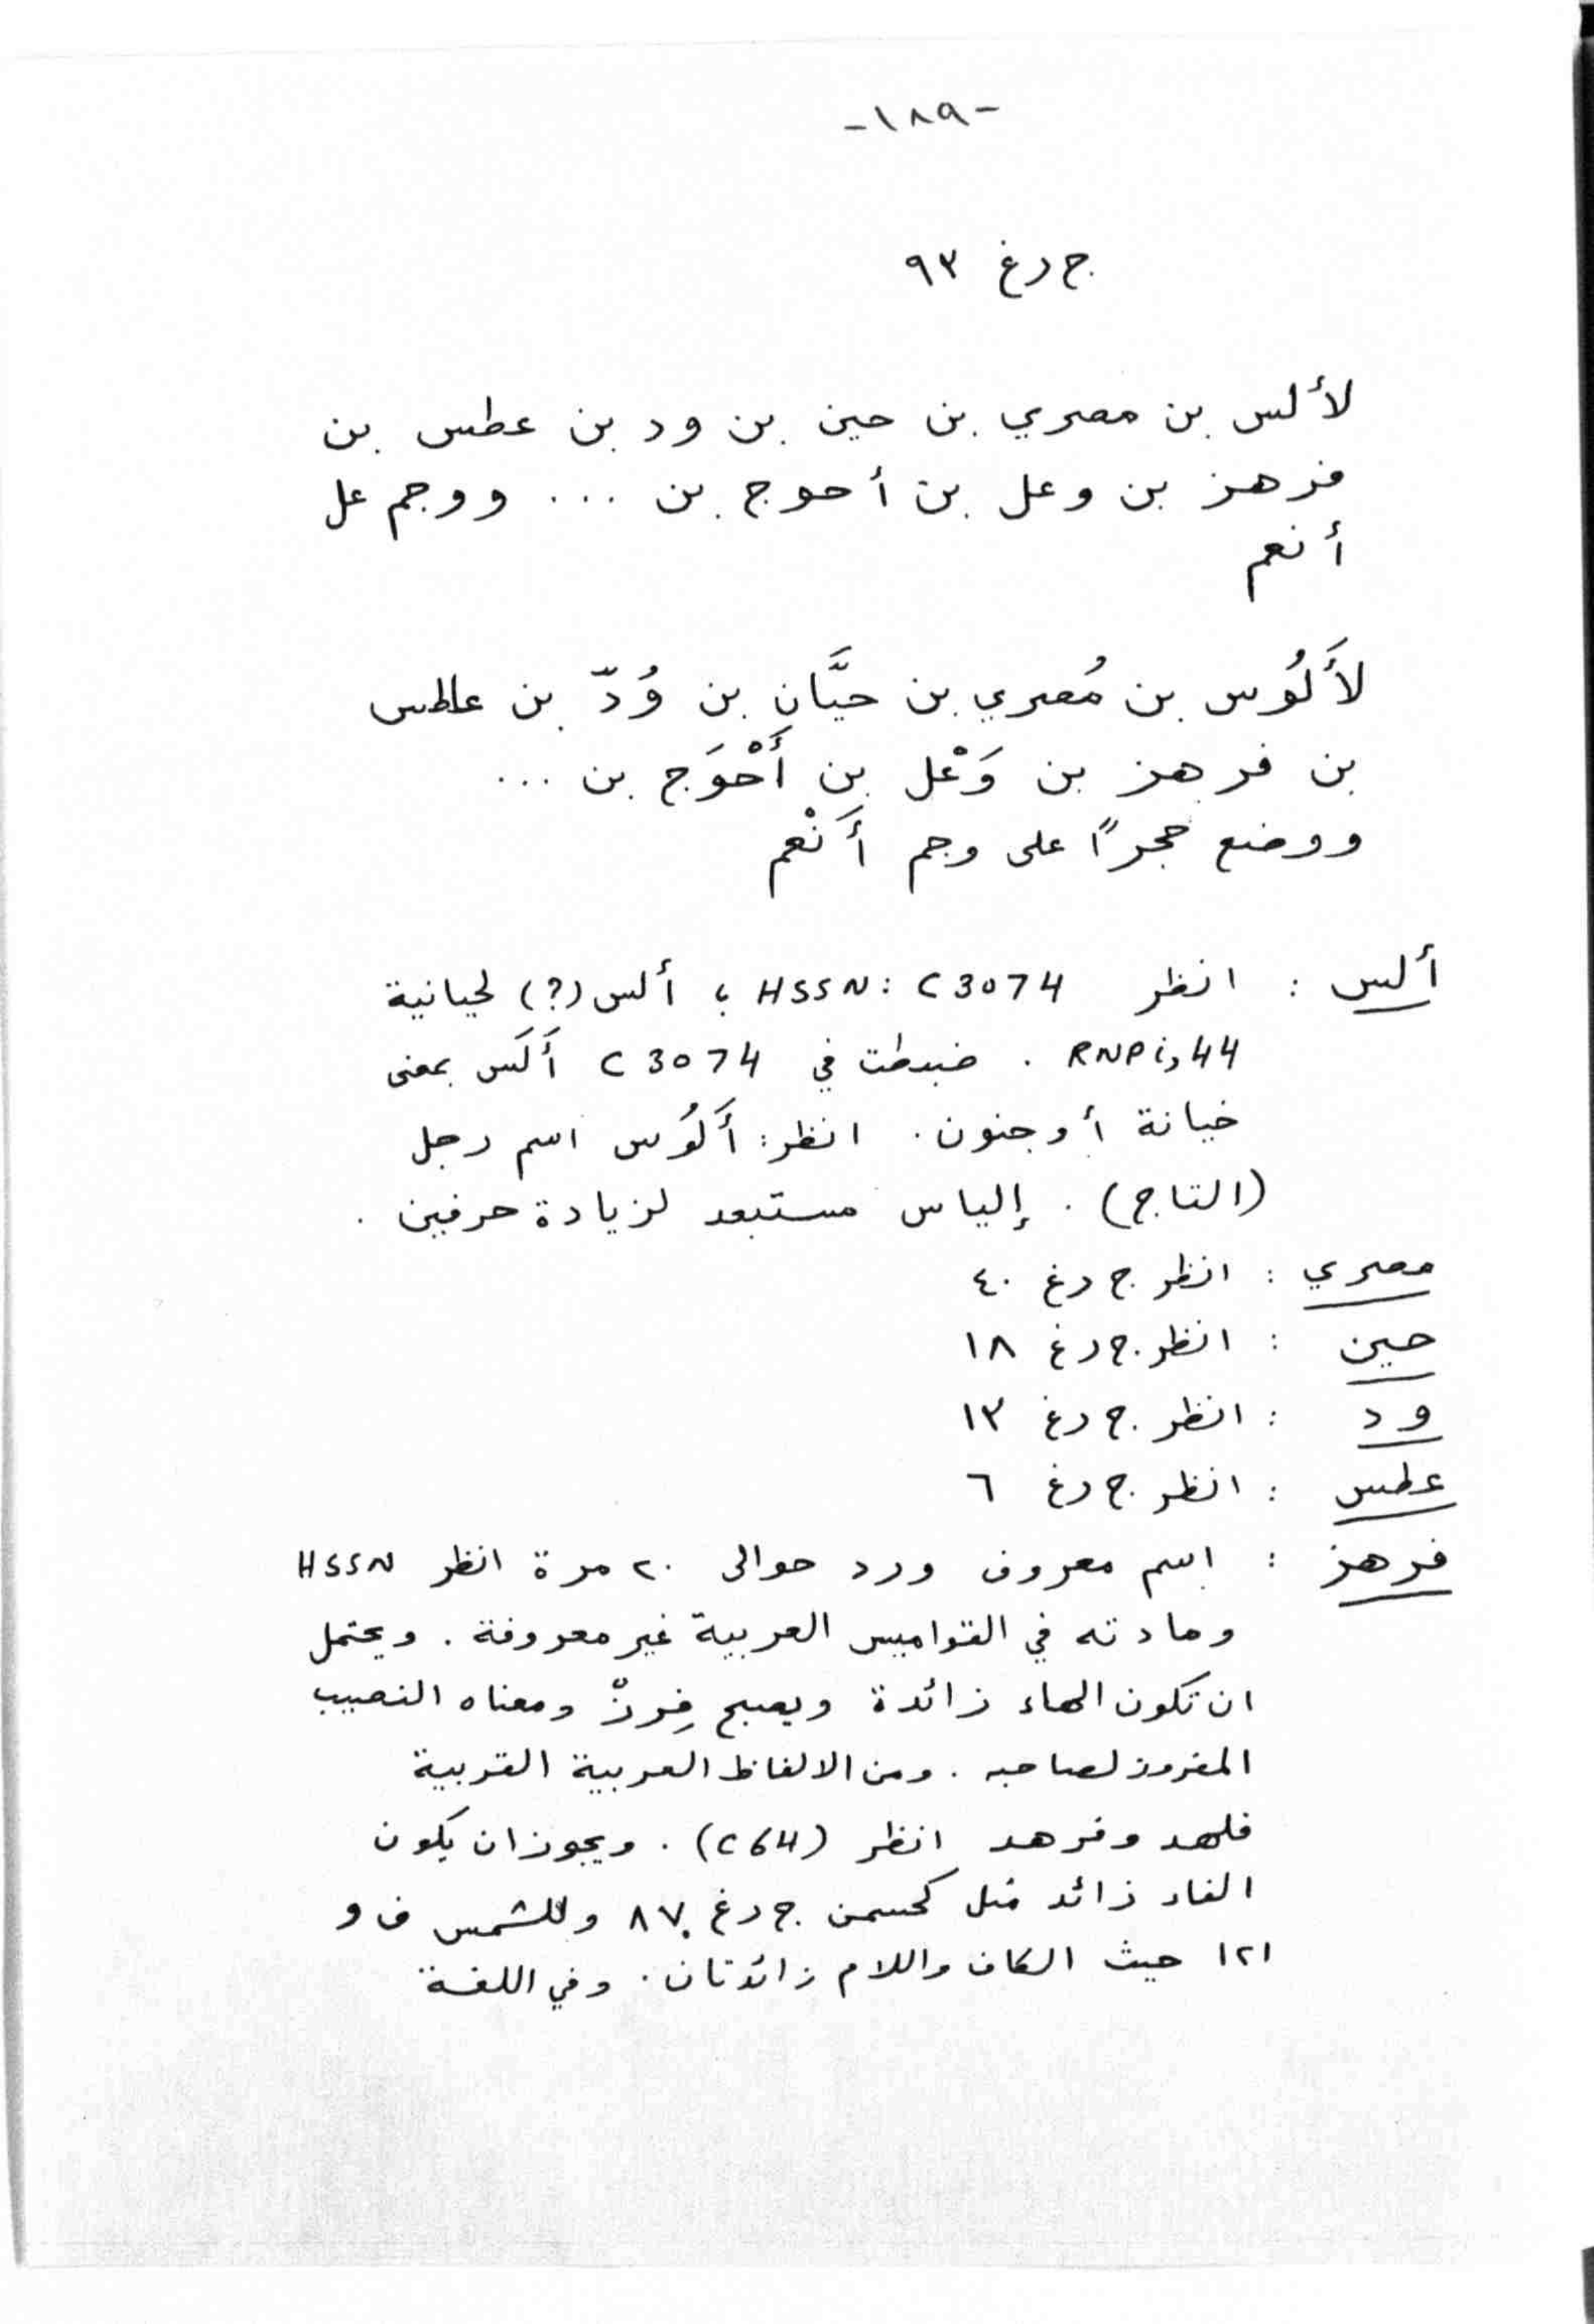 -١٨٩-
ج دغ ٩٣
لألس بن مصري بن حين بن ود بن عطس بن
فرهز بن وعل بن أحوج بن ... ووجم عل
أنعم
لأَلُوس بن مُصري بن حيَّان بن وُدّ بن عاطس
بن فرهز بن وَعْل بن أَحْوَج بن ...
ووضع حجراً على وجم أَنْعم
ألس : انظر HSSN: C3074 ؛ ألس (؟) لحيانية
RNPi,44 . ضبطت في C3074 أَلَس بمعنى
خيانة أو جنون . انظر : أَلُوس اسم رجل
(التاج) . إلياس مستبعد لزيادة حرفين .
مصري : انظر ج دغ ٤٠
حين : انظر ج دغ ١٨
ود : انظر ج دغ ١٣
عطس : انظر ج دغ ٦
فرهز : اسم معروف ورد حوالى ٢٠ مرة انظر HSSN
ومادته في القواميس العربية غير معروفة . ويحتمل
ان تكون الهاء زائدة ويصبح فِرزْ ومعناه النصيب
المفروز لصاحبه . ومن الالفاظ العربية القريبة
فلهد وفرهد انظر (C64) . ويجوز ان يكون
الفاء زائد مثل كحسمن ج دغ ٨٧ وللشمس ف و
١٢١ حيث الكاف واللام زائدتان . وفي اللغة